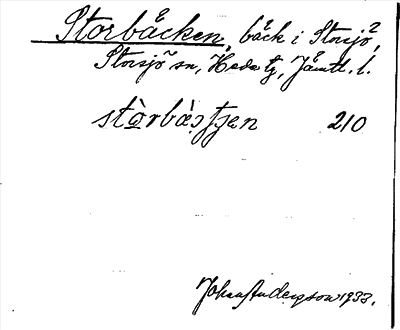 Storbäcken, bäck i Storsjö,
Storsjö sn, Hede tg, Jämtl. l.
stòrbàᶎtʃen 210
Johan Anderson 1933.